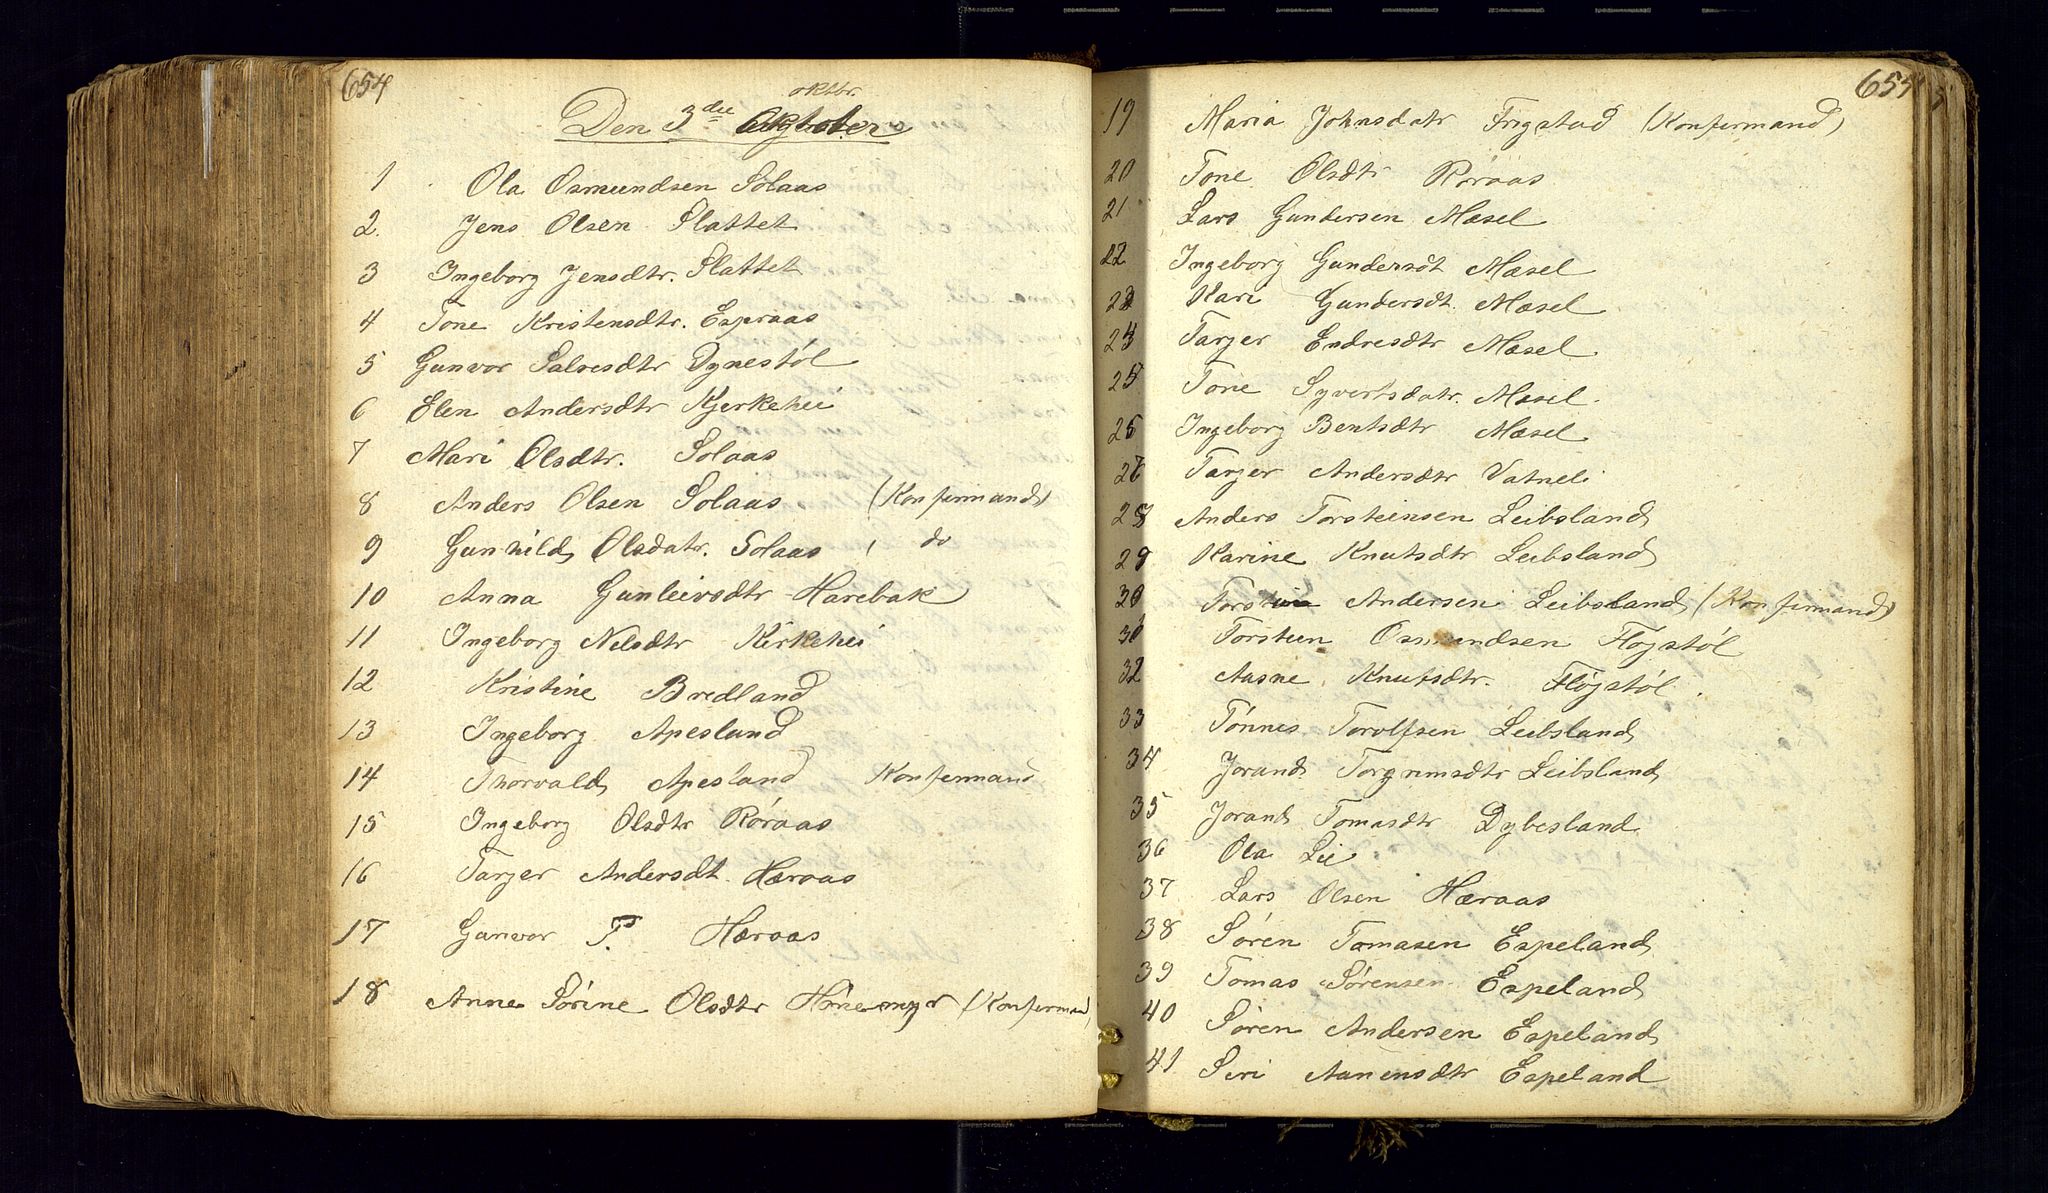 654
oktbr.
Den 3die Oktober
1 Ola Osmundsen Solaas
2. Jens Olsen Slattet
3 Ingeborg Jensdtr. Slattet
4 Tone Kristensdtr. Espraas
5 Gunvor Salvesdtr Dynestøl
6 Elen Andersdtr Kjerkehei
7 Mari Olsdtr. Solaas
8 Anders Olsen Solaas (Konfermand)
9 Gunhild Olsdatr. Solaas, do
10 Anna Gunleivsdtr Harebak
11 Ingeborg Nilsdtr Kirkehei
12 Kristine Bredland
13 Ingeborg Apesland
14 Thorvald Apesland Konfermand
15 Ingeborg Olsdtr Røraas
16 Tarjer Andersdt. Hæraas
17 Gunvor T. Hæraas
18 Anne Sørine Olsdtr Hønemyr (Konfermand)
655
19 Maria Johnsdatr Frigstad (Konfermand)
20 Tone Olsdtr Røraas
21 Lars Gundersen Mæsel
22 Ingeborg Gundersdt Mæsel
23 Kari Gundersdt. Mæsel
24 Tarjer Endresdtr Mæsel
25 Tone Syvertsdatr. Mæsel.
26 Ingeborg Bentsdtr Mæsel
27 Tarjer Andersdtr Vatneli
28 Anders Torsteinsen Leibsland
29 Karine Knutsdtr Leibsland
30 Torstein Andersen Leibsland (Konfermand)
31 Torstein Osmundsen Fløjstøl
32 Aasne Knutsdtr. Fløjstøl.
33 Tønnes Torolfsen Leibsland
34 Jorand Torgrimsdtr Leibsland
35 Jorand Tomasdtr Dybesland
36 Ola Lie
37 Lars Olsen Hæraas
38 Søren Tomasen Espeland
39 Tomas Sørensen Espeland
40 Søren Andersen Espeland
41 Siri Aanensdtr Espeland